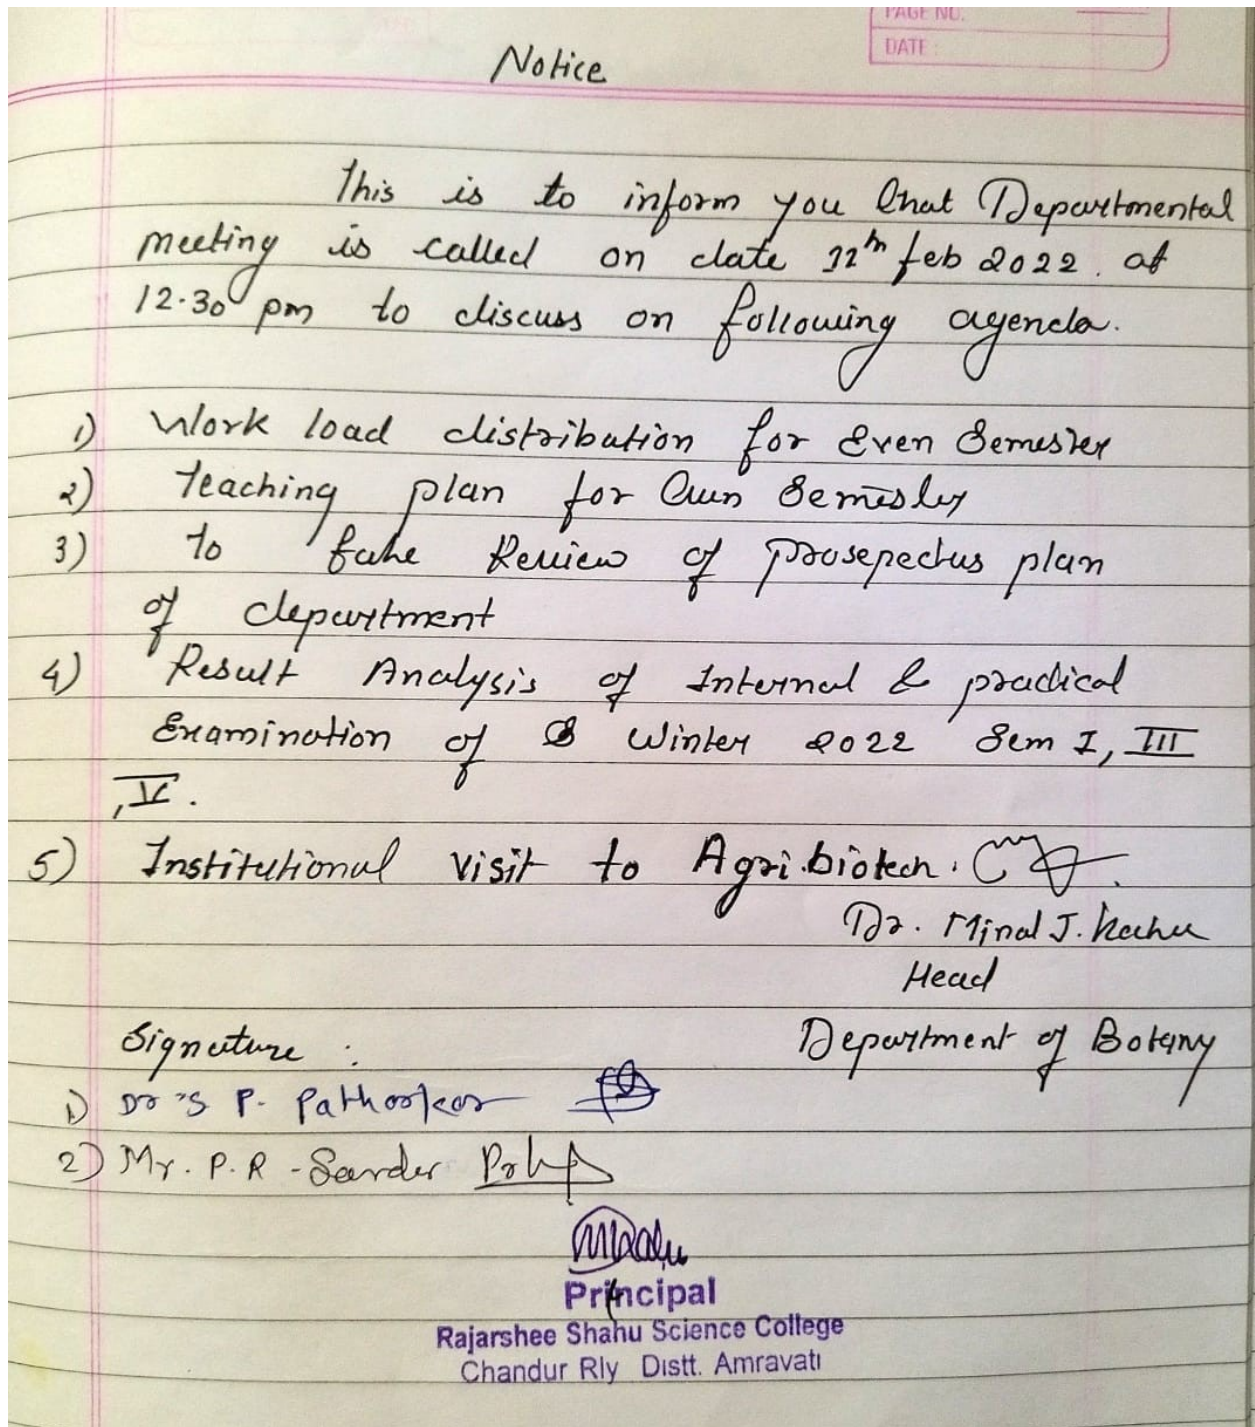 PAGE NO.
DATE:
Notice
This is to inform you that Departmental
meeting is called on date 12th feb 2022. at
12.30 pm to discuss on following agenda.
1) Work load distribution for Even Semester
2) Teaching plan for Even Semester
3) To take Review of prosepectus plan
of department
4) Result Analysis of Internal & practical
Examination of Winter 2022 Sem I, III
, V.
5) Institutional visit to Agri.biotech.
Dr. Minal J. Kahu
Head
Department of Botany
Signature :
1) Dr S P. Pathorkar
2) Mr. P.R - Sarder
Principal
Rajarshee Shahu Science College
Chandur Rly Distt. Amravati